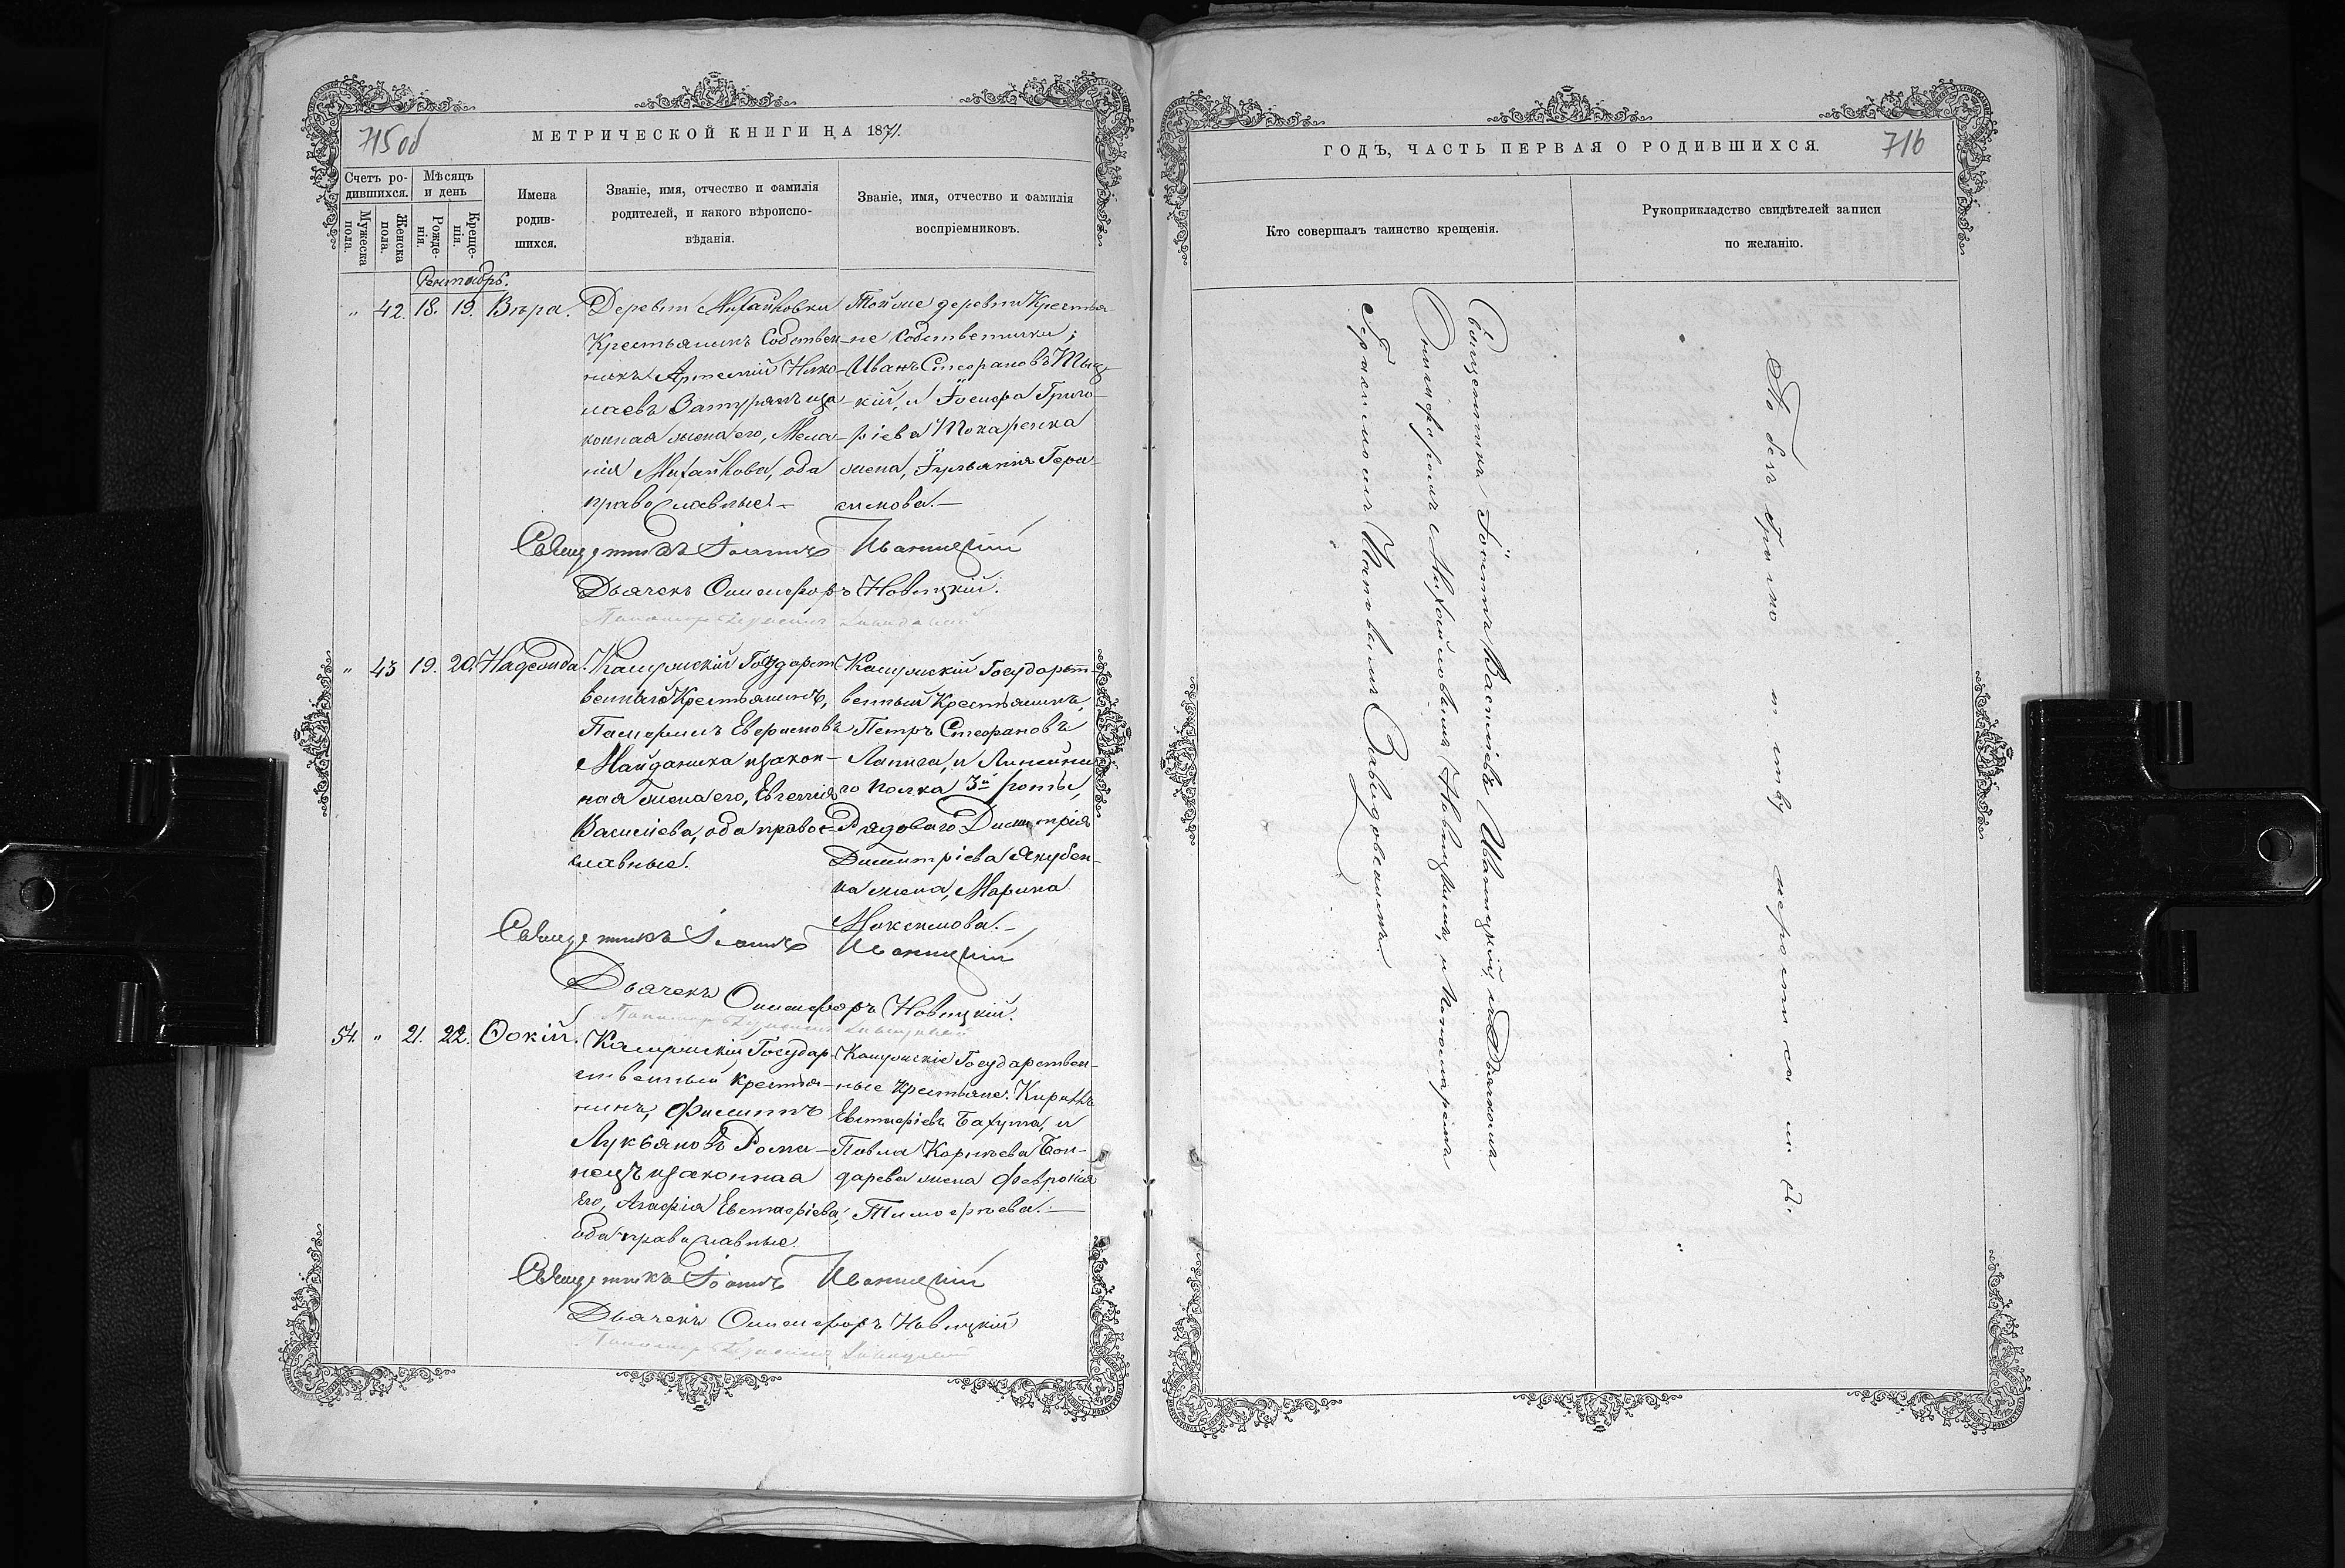 715 об
МЕТРИЧЕСКОЙ КНИГИ НА 1871.
Счетъ ро-
дившихся.
Мѣсяцъ
и день
Мужеска
пола.
Женска
пола.
Рожде-
нія.
Креще-
нія.
Имена
родив-
шихся.
Званіе, имя, отчество и фамилія
родителей, и какого вѣроиспо-
вѣданія.
Званіе, имя, отчество и фамилія
воспріемниковъ.
Сентябрь.
" 42. 18. 19. Вѣра.
Деревни Михайловки
Крестьянинъ Собствен-
никъ Артемій Нико-
лаевъ и зако-
нная жена его, Мела-
нія Михайлова, оба
православные. –
Той же деревни Крестья-
не собственники;
Иванъ Стефановъ
кій, и Іосифа Григо-
ріева Токаренка
жена, Іуліанія Гера-
симова. –
Священникъ Іоаннъ Иваницкій
Дьячекъ Онисифоръ Новицкій.
Пономарь Герасимъ
" 43 19. 20. Надежда.
Государст-
венный Крестьянинъ,
Памфилъ Евфимовъ
Майданика и закон-
ная жена его, Евгенія
Василіева, оба правос-
лавные.
Государст-
венный Крестьянинъ,
Петръ Стефановъ
Лапига, и
го полка 3й роты,
Рядоваго Димитрія
Димитріева Якубен-
ка жена, Марина
Максимова. –
Священникъ Іоаннъ Иваницкій
Дьячекъ Онисифоръ Новицкій.
Пономарь Герасимъ
54. " 21. 22. Ѳокій.
Государ-
ственный крестья-
нинъ, Филиппъ
Лукьяновъ Рома-
нецъ и законная
его, Агафія Евстафіева,
оба православные.
Государствен-
ные Крестьяне: Кириллъ
Евстафіевъ Бахута, и
Павла Корнѣева Бон-
даревa жена Февронія
Тимофѣева. –
Священникъ Іоаннъ Иваницкій
Дьячекъ Онисифоръ Новицкій
Пономарь Герасимъ
ГОДЪ, ЧАСТЬ ПЕРВАЯ О РОДИВШИХСЯ.
716
Кто совершалъ таинство крещенія.
Рукоприкладство свидѣтелей записи
по желанію.
Священникъ Іоаннъ Васильевъ Иваницкій, съ Дьячкомъ
Онисифоромъ Михайловымъ Новицкимъ, и Пономаремъ
Герасимомъ